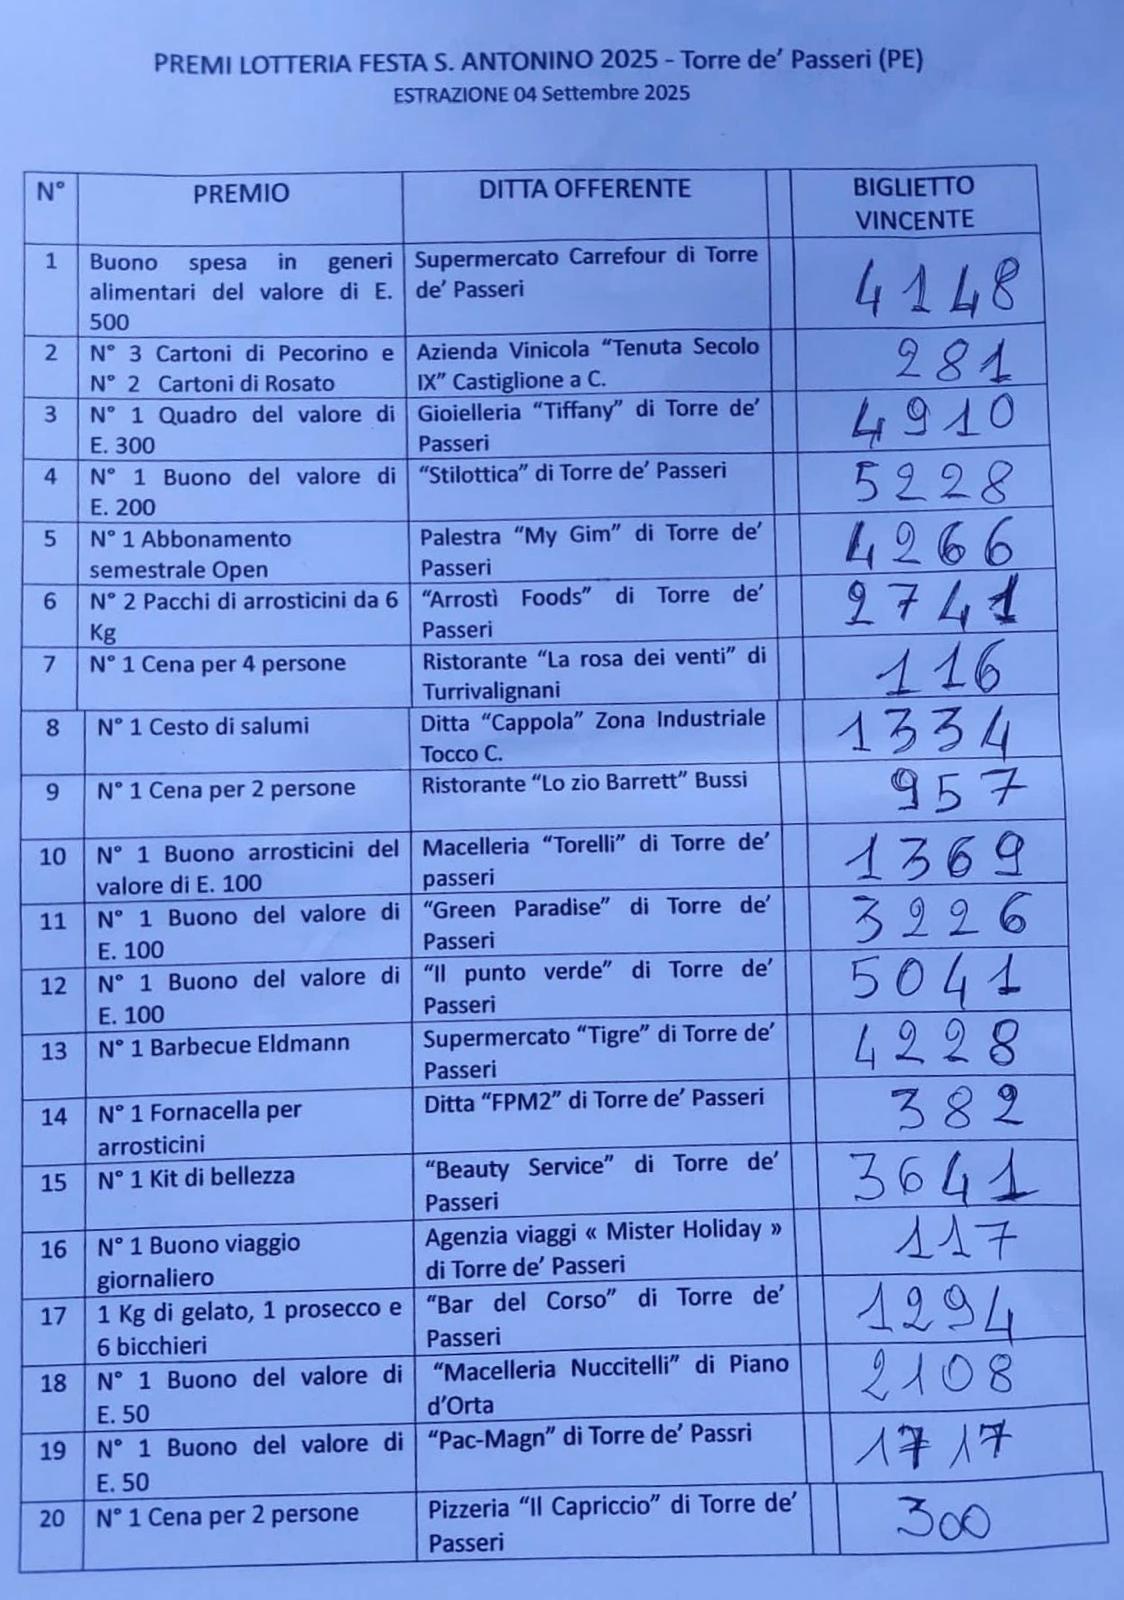 PREMI LOTTERIA FESTA S. ANTONINO 2025 - Torre de' Passeri (PE)
ESTRAZIONE 04 Settembre 2025
N° PREMIO DITTA OFFERENTE BIGLIETTO
VINCENTE
1 Buono spesa in generi Supermercato Carrefour di Torre 4148
alimentari del valore di E. de' Passeri
500
2 N° 3 Cartoni di Pecorino e Azienda Vinicola "Tenuta Secolo 281
N° 2 Cartoni di Rosato IX" Castiglione a C.
3 N° 1 Quadro del valore di Gioielleria "Tiffany" di Torre de' 4910
E. 300 Passeri
4 N° 1 Buono del valore di "Stilottica" di Torre de' Passeri 5228
E. 200
5 N° 1 Abbonamento Palestra "My Gim" di Torre de' 4266
semestrale Open Passeri
6 N° 2 Pacchi di arrosticini da 6 "Arrostì Foods" di Torre de' 2741
Kg Passeri
7 N° 1 Cena per 4 persone Ristorante "La rosa dei venti" di 116
Turrivalignani
8 N° 1 Cesto di salumi Ditta "Cappola" Zona Industriale 1334
Tocco C.
9 N° 1 Cena per 2 persone Ristorante "Lo zio Barrett" Bussi 957
10 N° 1 Buono arrosticini del Macelleria "Torelli" di Torre de' 1369
valore di E. 100 passeri
11 N° 1 Buono del valore di "Green Paradise" di Torre de' 3226
E. 100 Passeri
12 N° 1 Buono del valore di "Il punto verde" di Torre de' 5041
E. 100 Passeri
13 N° 1 Barbecue Eldmann Supermercato "Tigre" di Torre de' 4228
Passeri
14 N° 1 Fornacella per Ditta "FPM2" di Torre de' Passeri 382
arrosticini
15 N° 1 Kit di bellezza "Beauty Service" di Torre de' 3641
Passeri
16 N° 1 Buono viaggio Agenzia viaggi « Mister Holiday » 117
giornaliero di Torre de' Passeri
17 1 Kg di gelato, 1 prosecco e "Bar del Corso" di Torre de' 1294
6 bicchieri Passeri
18 N° 1 Buono del valore di "Macelleria Nuccitelli" di Piano 2108
E. 50 d'Orta
19 N° 1 Buono del valore di "Pac-Magn" di Torre de' Passri 1717
E. 50
20 N° 1 Cena per 2 persone Pizzeria "Il Capriccio" di Torre de' 300
Passeri